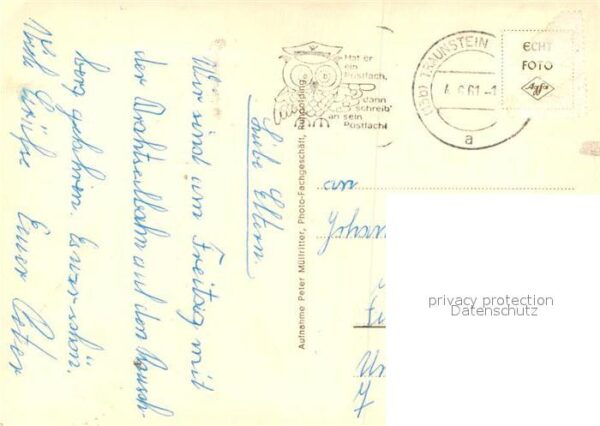 Liebe Eltern.
Wir sind am Freitag mit
der Drahtseilbahn auf den Rausch-
berg gefahren. Es war schön.
Viele Grüße Euer Peter
Aufnahme Peter Müllritter, Photo-Fachgeschäft, Ruhpolding
Hat er
ein
Postfach,
dann
schreib'
an sein
Postfach!
(13b) TRAUNSTEIN
61-1
a
ECHT
FOTO
Agfa
an
privacy protection
Datenschutz